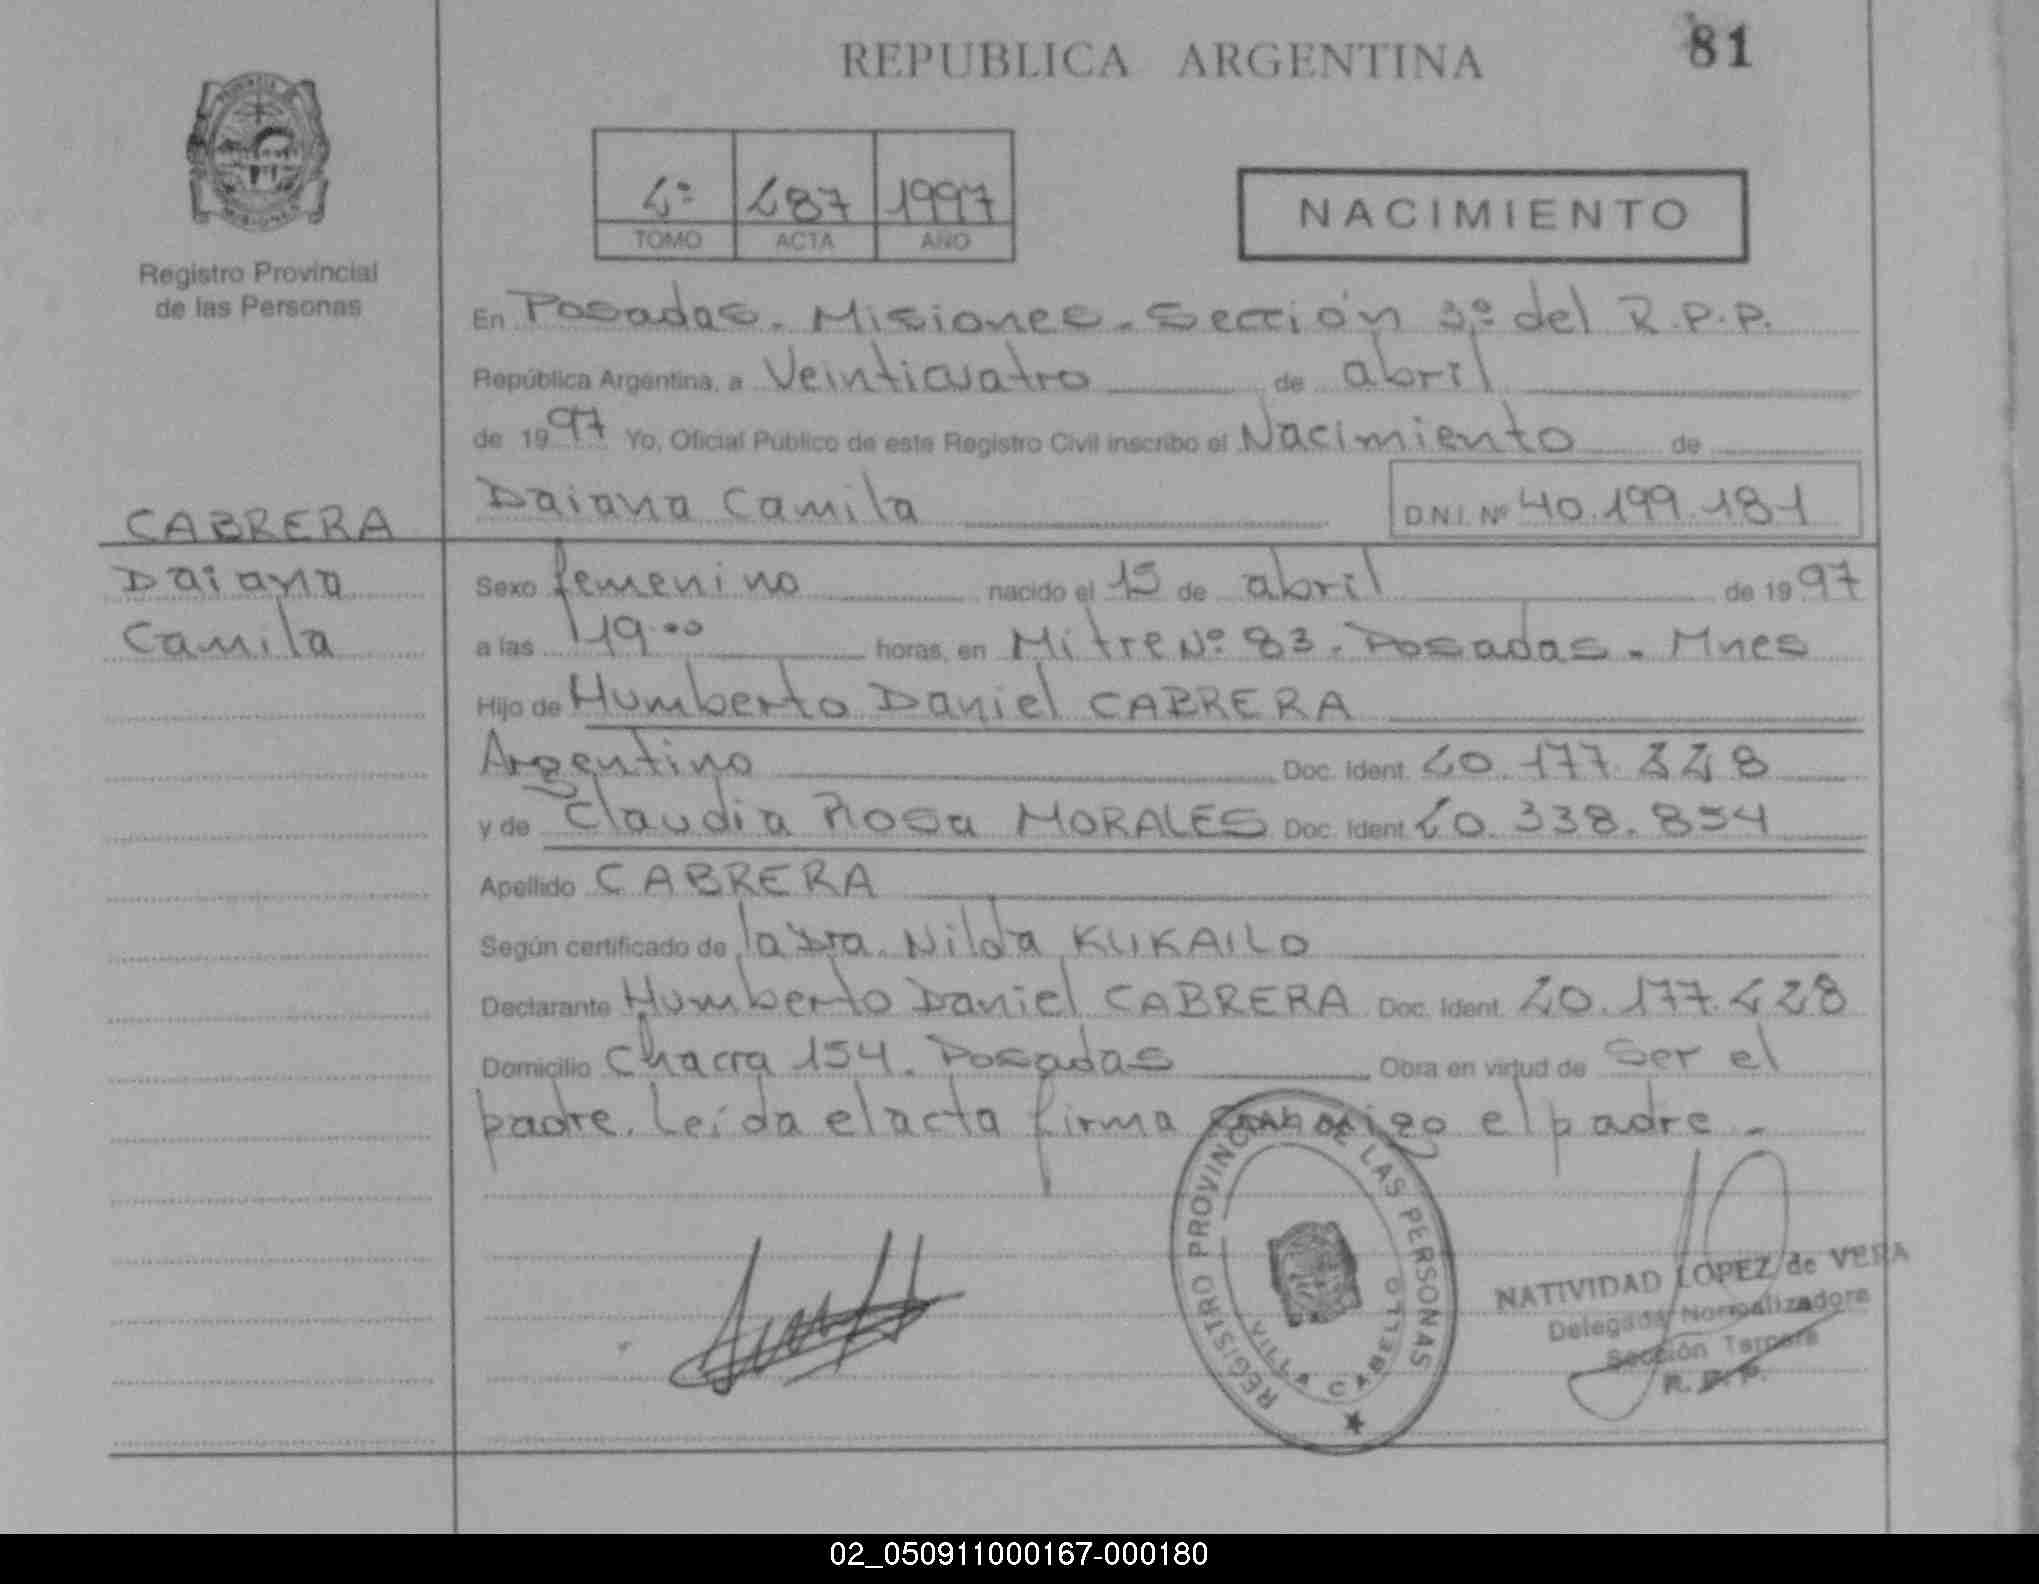 REPUBLICA ARGENTINA
81
Registro Provincial
de las Personas
TOMO ACTA AÑO
1997
NACIMIENTO
En Posadas. Misiones. Sección 3º del R.P.P.
República Argentina, a Veinticuatro de abril
de 1997 Yo, Oficial Público de este Registro Civil inscribo el Nacimiento de
Daiana Camila D.N.I. Nº 40.199.181
CABRERA
Daiana
Camila
Sexo femenino nacido el 15 de abril de 1997
a las 19.00 horas, en Mitre Nº 83. Posadas. Mnes
Hijo de Humberto Daniel CABRERA
Argentino Doc. Ident.
y de Claudia Rosa MORALES Doc. Ident.
Apellido CABRERA
Según certificado de la Dra. Nilda KUKAILO
Declarante Humberto Daniel CABRERA Doc. Ident.
Domicilio Chacra 154. Posadas Obra en virtud de Ser el
padre. Leída el acta firma conmigo el padre.
REGISTRO PROVINCIAL DE LAS PERSONAS
VILLA CABELLO
NATIVIDAD LOPEZ de VERA
Delegada Normalizadora
Sección Tercera
R. P. P.
02_050911000167-000180